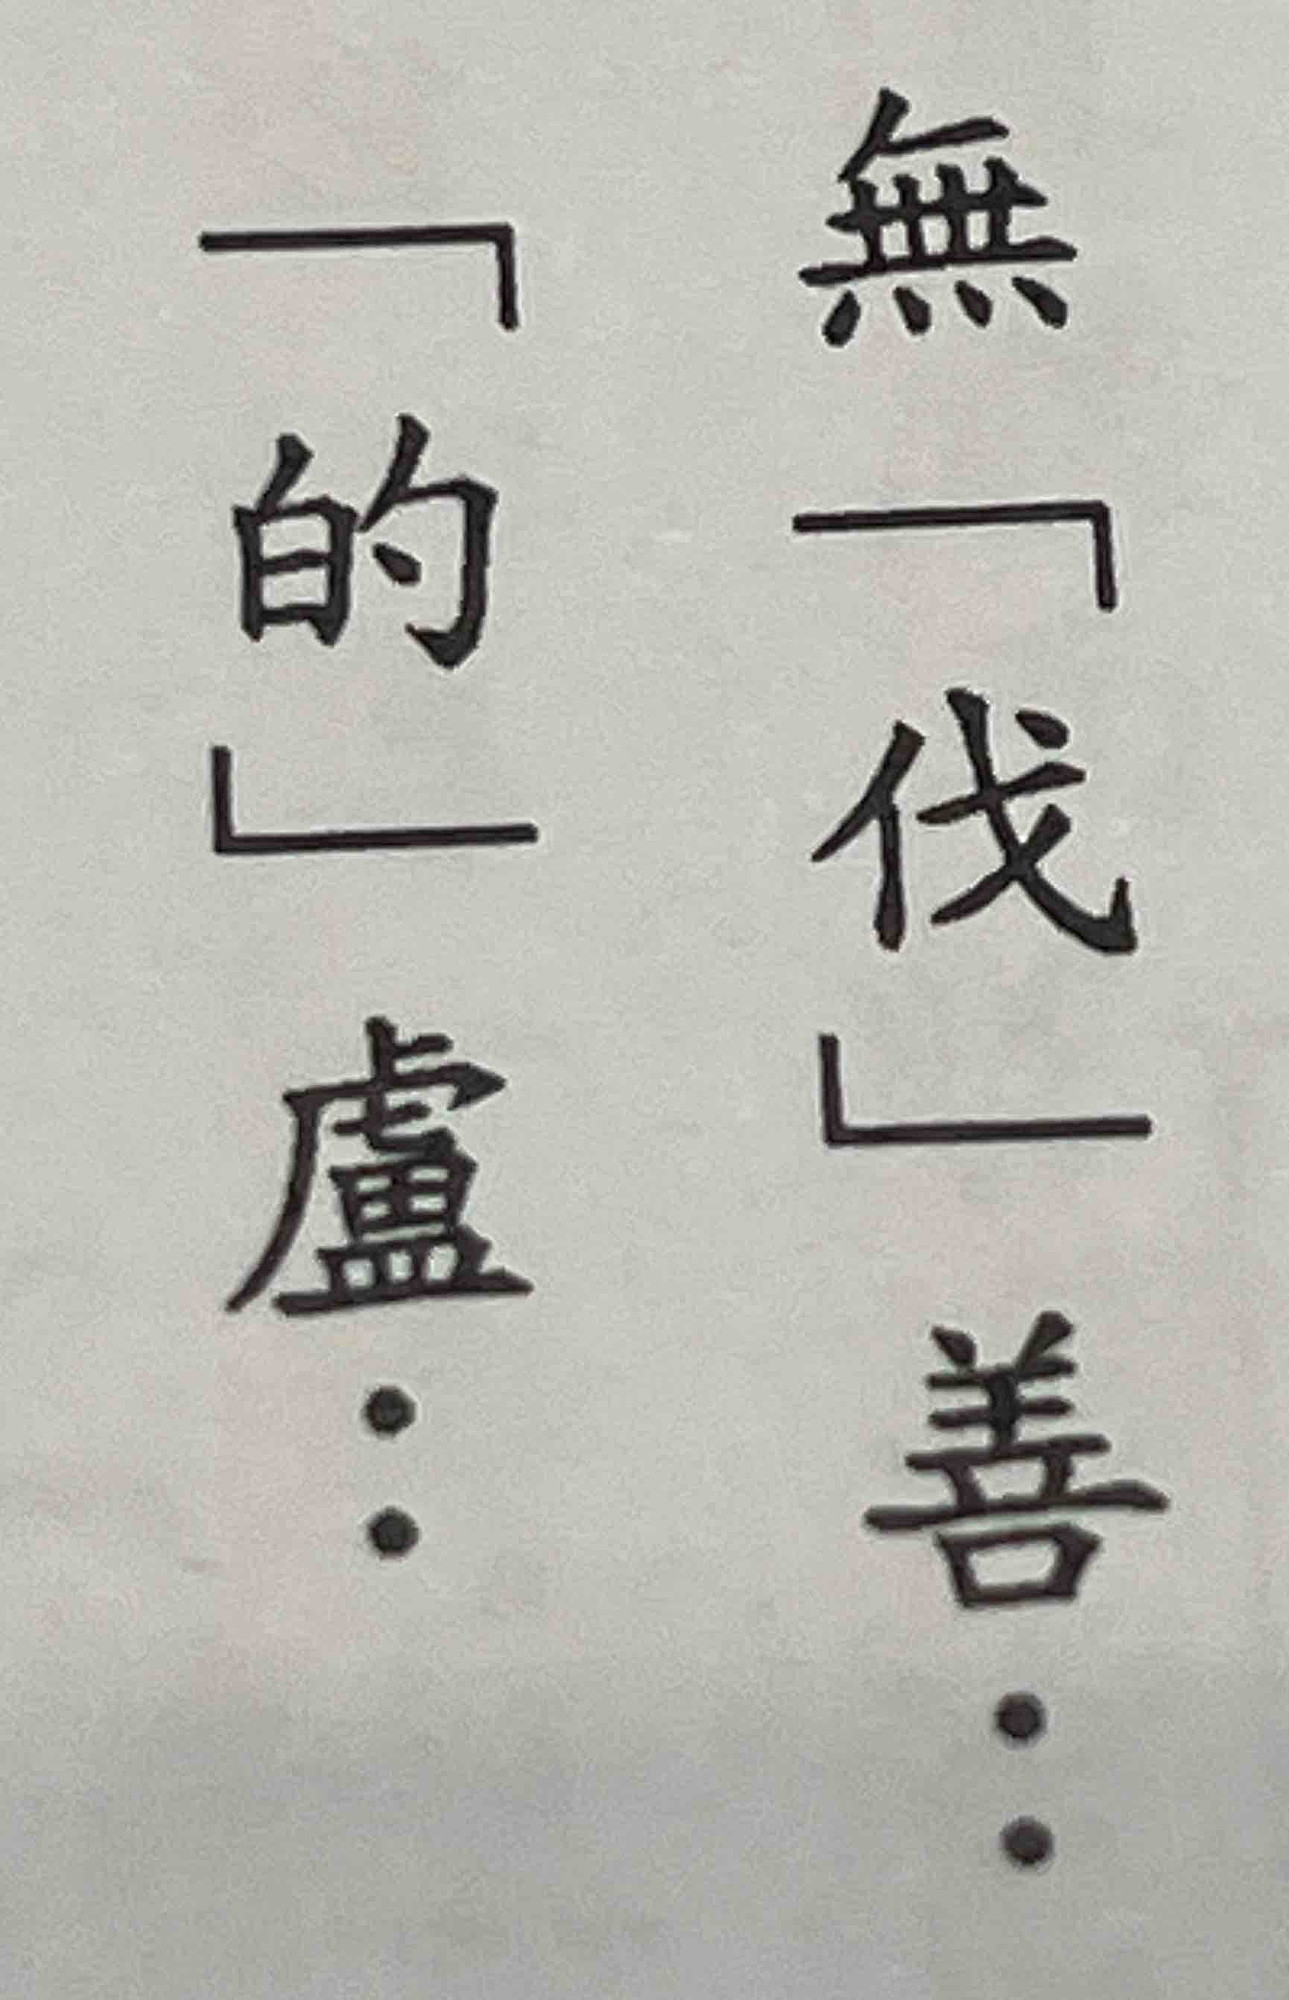 無「伐」善：
「的」盧：